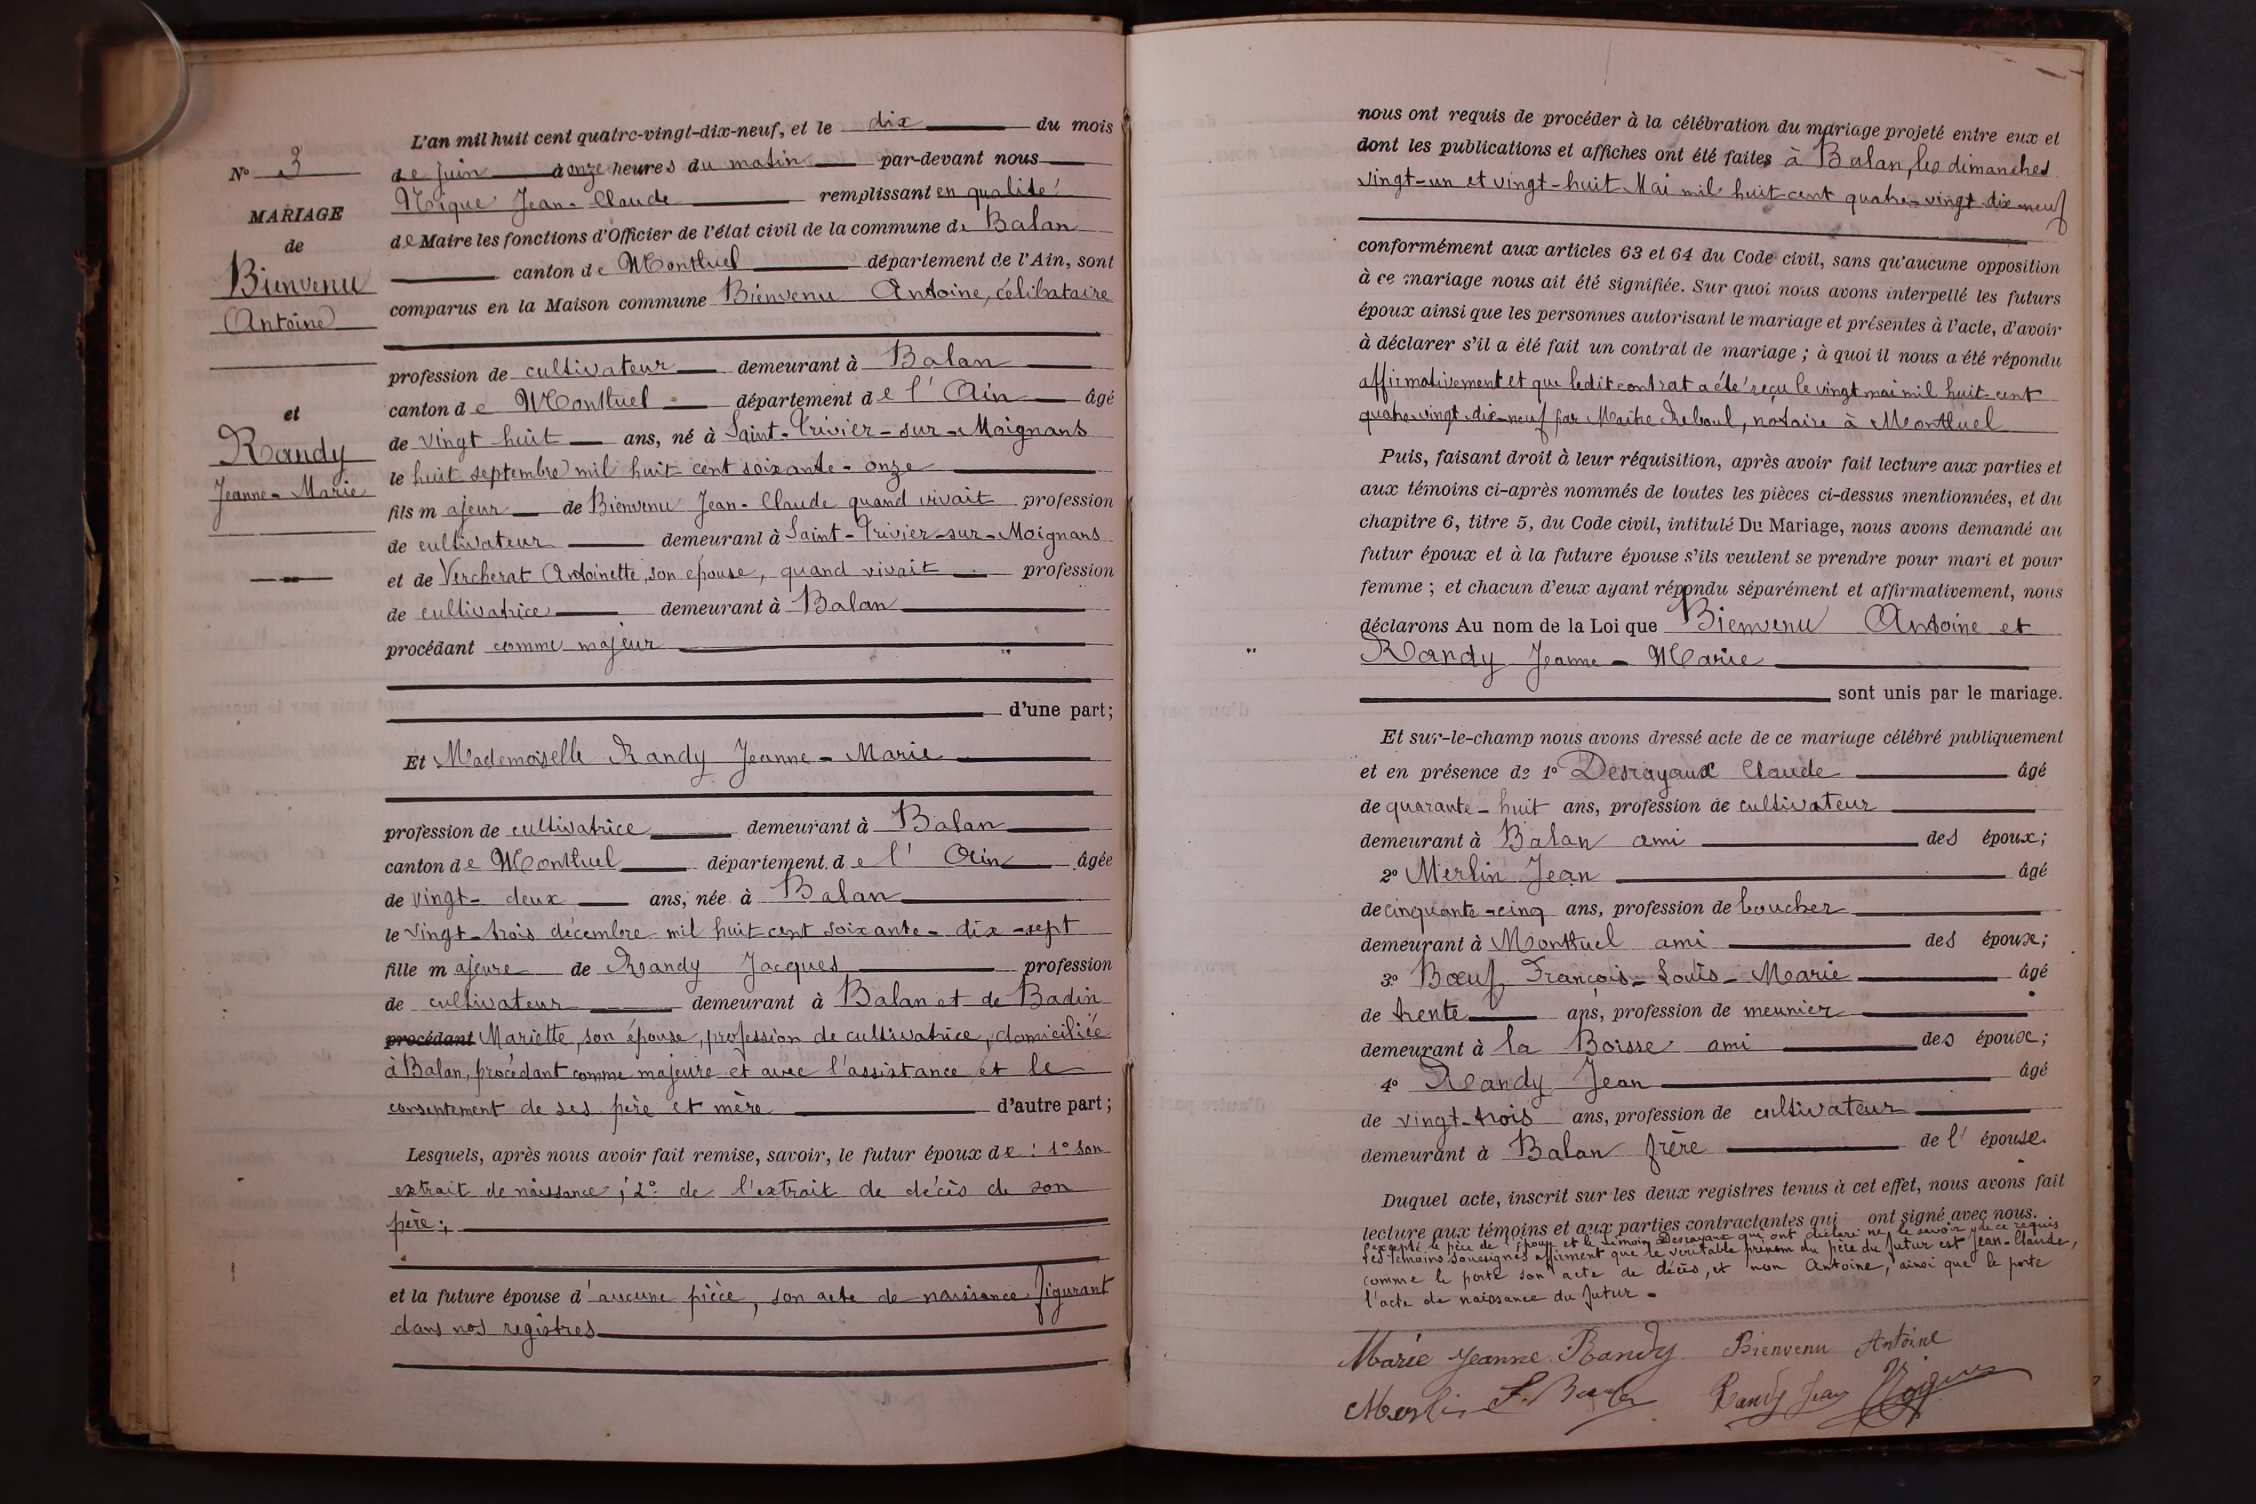 N° 3
MARIAGE
de
Bienvenu
Antoine
et
Randy
Jeanne-Marie
L'an mil huit cent quatre-vingt-dix-neuf, et le dix du mois
de juin à onze heures du matin par-devant nous
Jean-Claude remplissant en qualité
de Maire les fonctions d'Officier de l'état civil de la commune de Balan
canton de Montluel département de l'Ain, sont
comparus en la Maison commune Bienvenu Antoine, célibataire
profession de cultivateur demeurant à Balan
canton de Montluel département de l'Ain âgé
de vingt huit ans, né à Saint-Trivier-sur-Moignans
le huit septembre mil huit cent soixante-onze
fils majeur de Bienvenu Jean-Claude quand vivait profession
de cultivateur demeurant à Saint-Trivier-sur-Moignans
et de Vercherat Antoinette, son épouse, quand vivait profession
de cultivatrice demeurant à Balan
procédant comme majeur
d'une part;
Et Mademoiselle Randy Jeanne-Marie
profession de cultivatrice demeurant à Balan
canton de Montluel département de l'Ain âgée
de vingt-deux ans, née à Balan
le vingt-trois décembre mil huit cent soixante-dix-sept
fille majeure de Randy Jacques profession
de cultivateur demeurant à Balan et de Badin
procédant Mariette, son épouse, profession de cultivatrice, domiciliée
à Balan, procédant comme majeure et avec l'assistance et le
consentement de ses père et mère d'autre part;
Lesquels, après nous avoir fait remise, savoir, le futur époux de: 1° son
extrait de naissance; 2° de l'extrait de décès de son
père;
et la future épouse d'aucune pièce, son acte de naissance figurant
dans nos registres
nous ont requis de procéder à la célébration du mariage projeté entre eux et
dont les publications et affiches ont été faites à Balan, les dimanches
vingt-un et vingt-huit Mai mil huit-cent quatre-vingt-dix-neuf
conformément aux articles 63 et 64 du Code civil, sans qu'aucune opposition
à ce mariage nous ait été signifiée. Sur quoi nous avons interpellé les futurs
époux ainsi que les personnes autorisant le mariage et présentes à l'acte, d'avoir
à déclarer s'il a été fait un contrat de mariage; à quoi il nous a été répondu
affirmativement et que ledit contrat a été reçu le vingt mai mil huit cent
quatre-vingt-dix-neuf par Maître Reboul, notaire à Montluel
Puis, faisant droit à leur réquisition, après avoir fait lecture aux parties et
aux témoins ci-après nommés de toutes les pièces ci-dessus mentionnées, et du
chapitre 6, titre 5, du Code civil, intitulé Du Mariage, nous avons demandé au
futur époux et à la future épouse s'ils veulent se prendre pour mari et pour
femme; et chacun d'eux ayant répondu séparément et affirmativement, nous
déclarons Au nom de la Loi que Bienvenu Antoine et
Randy Jeanne-Marie
sont unis par le mariage.
Et sur-le-champ nous avons dressé acte de ce mariage célébré publiquement
et en présence de 1° Desrayaux Claude âgé
de quarante-huit ans, profession de cultivateur
demeurant à Balan ami des époux;
2° Merlin Jean âgé
de cinquante-cinq ans, profession de boucher
demeurant à Montluel ami des époux;
3° Bœuf François-Louis-Marie âgé
de trente ans, profession de meunier
demeurant à la Boisse ami des époux;
4° Randy Jean âgé
de vingt-trois ans, profession de cultivateur
demeurant à Balan frère de l'épouse.
Duquel acte, inscrit sur les deux registres tenus à cet effet, nous avons fait
lecture aux témoins et aux parties contractantes qui ont signé avec nous.
excepté le père de l'épouse et le témoin Desrayaux qui ont déclaré ne le savoir de ce requis
Les témoins soussignés affirment que le véritable prénom du père du futur est Jean-Claude,
comme le porte son acte de décès, et non Antoine, ainsi que le porte
l'acte de naissance du futur.
Marie Jeanne Randy Bienvenu Antoine
Merlin Randy Jean